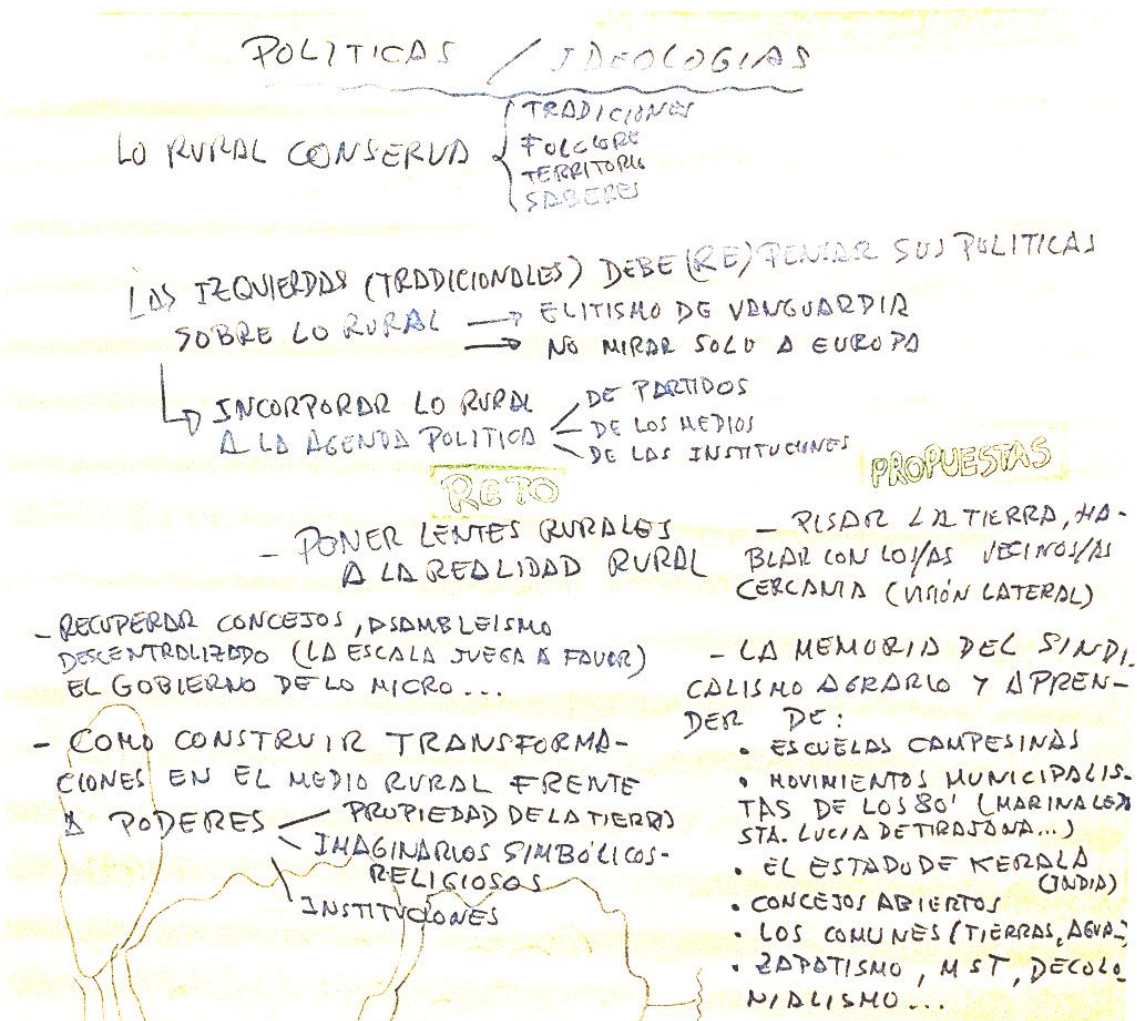 POLITICAS / IDEOLOGIAS
LO RURAL CONSERVA
TRADICIONES
FOLCLORE
TERRITORIO
SABERES
LAS IZQUIERDAS (TRADICIONALES) DEBE (RE) PENSAR SUS POLITICAS
SOBRE LO RURAL → ELITISMO DE VANGUARDIA
→ NO MIRAR SOLO A EUROPA
INCORPORAR LO RURAL
A LA AGENDA POLITICA
DE PARTIDOS
DE LOS MEDIOS
DE LAS INSTITUCIONES
RETO
- PONER LENTES RURALES
A LA REALIDAD RURAL
- RECUPERAR CONCEJOS, ASAMBLEISMO
DESCENTRALIZADO (LA ESCALA JUEGA A FAVOR)
EL GOBIERNO DE LO MICRO...
- COMO CONSTRUIR TRANSFORMA-
CIONES EN EL MEDIO RURAL FRENTE
A PODERES
PROPIEDAD DE LA TIERRA
IMAGINARIOS SIMBÓLICOS-
RELIGIOSOS
INSTITUCIONES
PROPUESTAS
- PISAR LA TIERRA, HA-
BLAR CON LOS/AS VECINOS/AS
CERCANIA (VISIÓN LATERAL)
- LA MEMORIA DEL SINDI-
CALISMO AGRARIO Y APREN-
DER DE:
• ESCUELAS CAMPESINAS
• MOVIMIENTOS MUNICIPALIS-
TAS DE LOS 80' (MARINALEDA
STA. LUCIA DE TIRAJANA...)
• EL ESTADO DE KERALA
(INDIA)
• CONCEJOS ABIERTOS
• LOS COMUNES (TIERRAS, AGUA...)
• ZAPATISMO, MST, DECOLO-
NIALISMO...